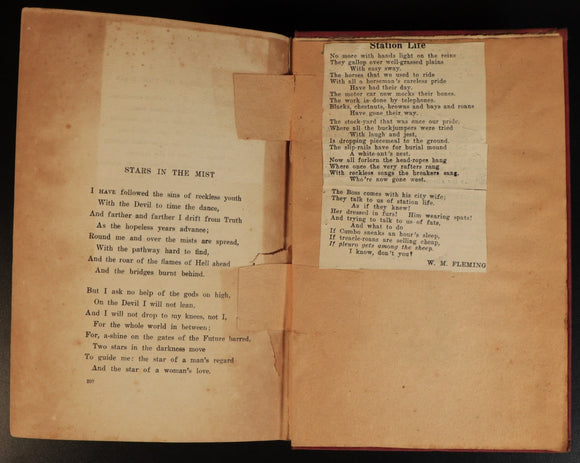 STARS IN THE MIST
I HAVE followed the sins of reckless youth
With the Devil to time the dance,
And farther and farther I drift from Truth
As the hopeless years advance;
Round me and over the mists are spread,
With the pathway hard to find,
And the roar of the flames of Hell ahead
And the bridges burnt behind.
But I ask no help of the gods on high,
On the Devil I will not lean,
And I will not drop to my knees, not I,
For the whole world in between;
For, a-shine on the gates of the Future barred,
Two stars in the darkness move
To guide me: the star of a man's regard
And the star of a woman's love.
207
Station Life
No more with hands light on the reins
They gallop over well-grassed plains
With easy sway,
The horses that we used to ride
With all a horseman's careless pride
Have had their day.
The motor car now mocks their bones.
The work is done by telephones.
Blacks, chestnuts, browns and bays and roans
Have gone their way.
The stock-yard that was once our pride,
Where all the buckjumpers were tried
With laugh and jest,
Is dropping piecemeal to the ground.
The slip-rails have for burial mound
A white-ant's nest.
Now all forlorn the head-ropes hang
Where once the very rafters rang
With reckless songs the breakers sang,
Who're now gone west.
The Boss comes with his city wife;
They talk to us of station life.
As if they knew!
Her dressed in furs! Him wearing spats!
And trying to talk to us of fats,
And what to do
If Cumbo sneaks an hour's sleep,
If treacle-roans are selling cheap,
If pleuro gets among the sheep.
I know, don't you?
W. M. FLEMING